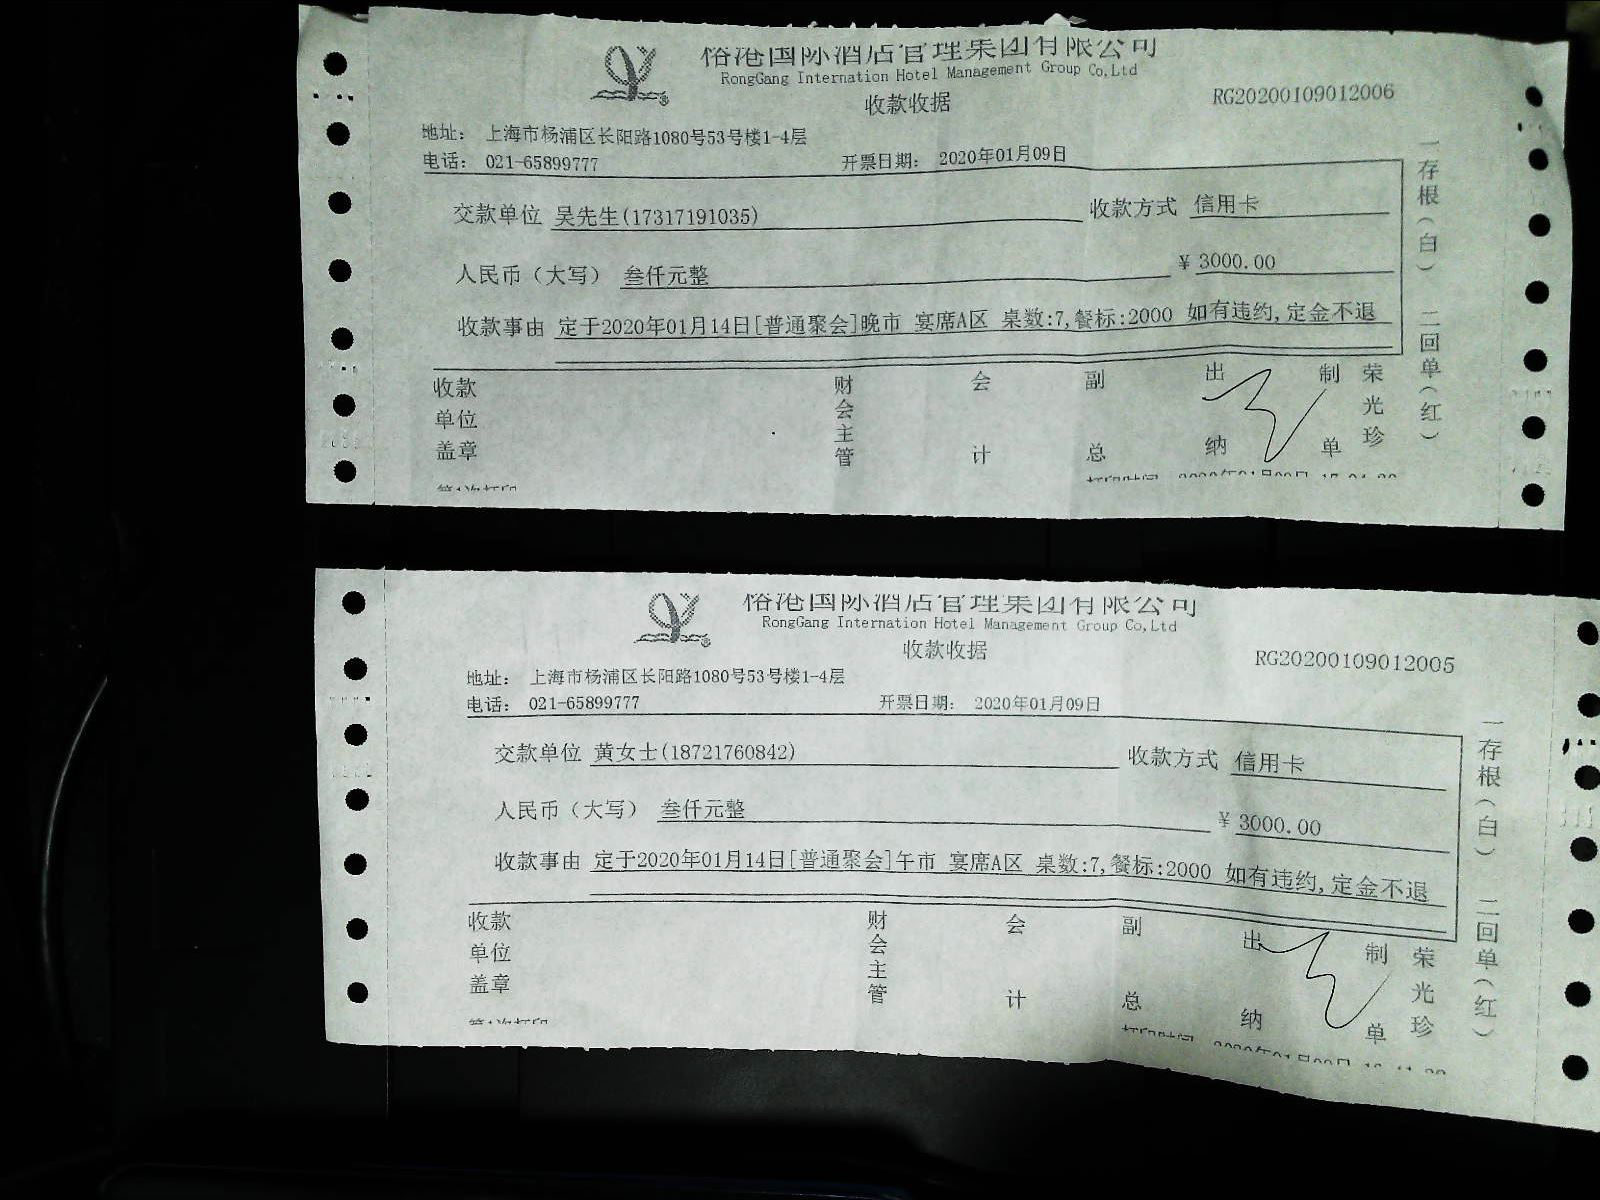 榕港国际酒店管理集团有限公司
RongGang Internation Hotel Management Group Co,Ltd
收款收据
RG20200109012006
地址： 上海市杨浦区长阳路1080号53号楼1-4层
电话： 021-65899777 开票日期： 2020年01月09日
交款单位 吴先生(17317191035) 收款方式 信用卡
人民币（大写） 叁仟元整 ￥ 3000.00
收款事由 定于2020年01月14日[普通聚会]晚市 宴席A区 桌数:7,餐标:2000 如有违约,定金不退
收款单位盖章 财会主管 会计 副总 出纳 制单 荣光珍
一存根（白） 二回单（红）
第1次打印 打印时间
榕港国际酒店管理集团有限公司
RongGang Internation Hotel Management Group Co,Ltd
收款收据
RG20200109012005
地址： 上海市杨浦区长阳路1080号53号楼1-4层
电话： 021-65899777 开票日期： 2020年01月09日
交款单位 黄女士(18721760842) 收款方式 信用卡
人民币（大写） 叁仟元整 ￥ 3000.00
收款事由 定于2020年01月14日[普通聚会]午市 宴席A区 桌数:7,餐标:2000 如有违约,定金不退
收款单位盖章 财会主管 会计 副总 出纳 制单 荣光珍
一存根（白） 二回单（红）
第1次打印 打印时间